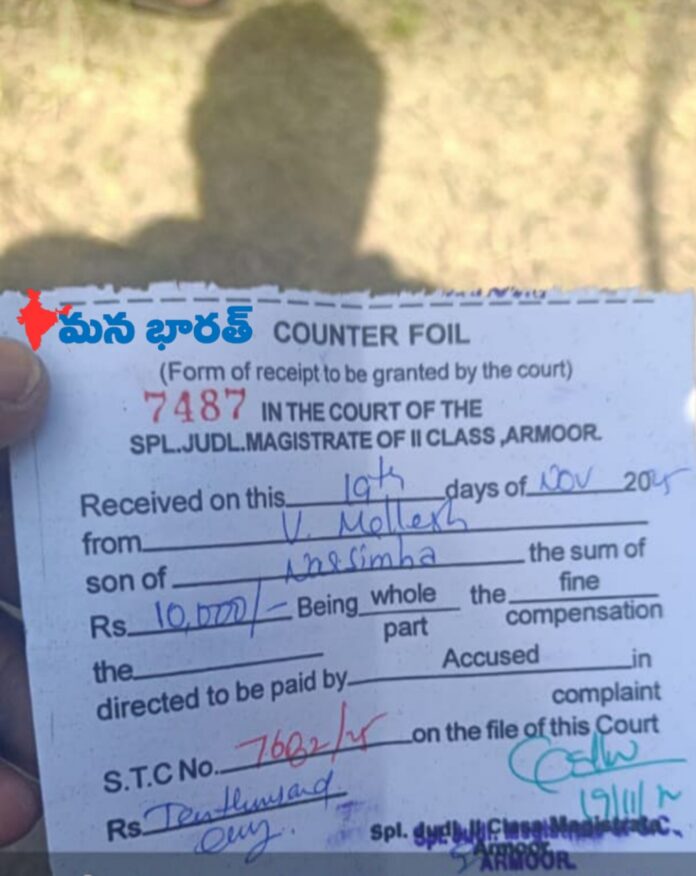 మన భారత్ COUNTER FOIL
(Form of receipt to be granted by the court)
7487 IN THE COURT OF THE
SPL.JUDL.MAGISTRATE OF II CLASS ,ARMOOR.
Received on this 19th days of Nov 2025
from V. Mallesh
son of Narsimha the sum of
Rs. 10,000/- Being whole the fine
part compensation
the
directed to be paid by Accused in
complaint
S.T.C No. 7682/25 on the file of this Court
19/11/25
Rs. Ten thousand
only.
Spl. Judl. II Class Magistrate
Armoor
ARMOOR.